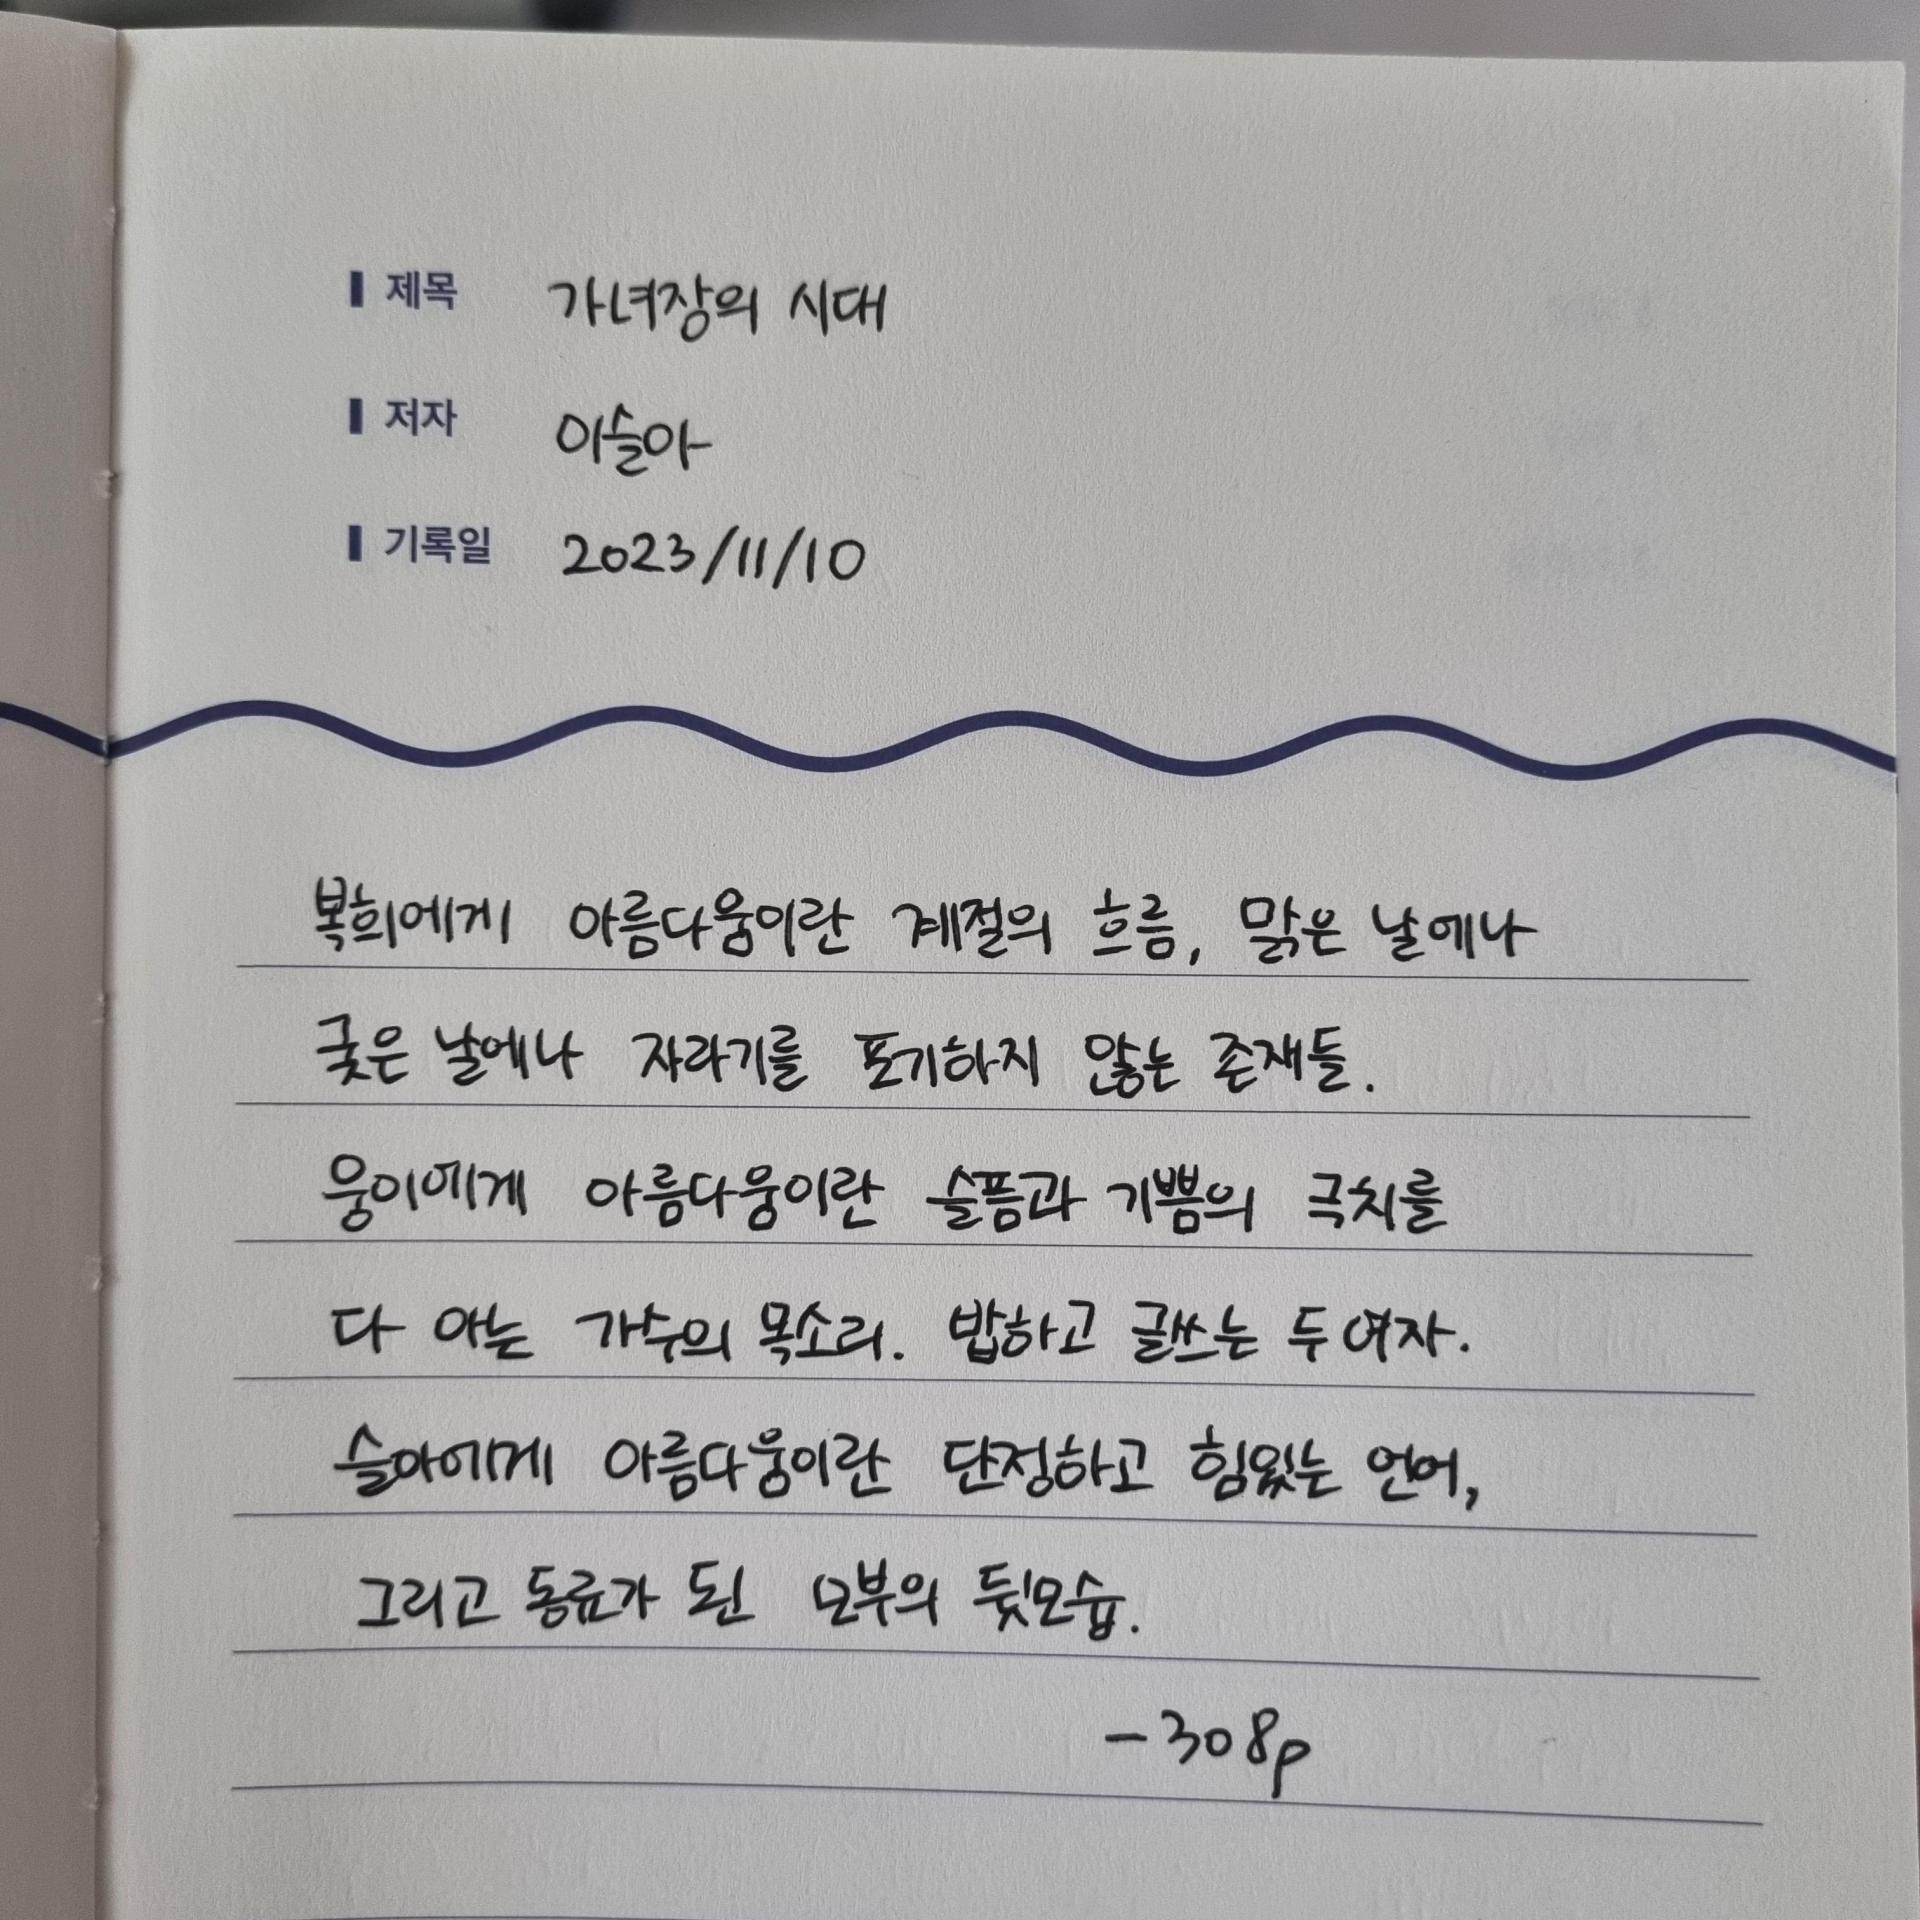 제목 가녀장의 시대
저자 이슬아
기록일 2023/11/10
복희에게 아름다움이란 계절의 흐름, 맑은 날에나
궂은 날에나 자라기를 포기하지 않는 존재들.
웅이에게 아름다움이란 슬픔과 기쁨의 극치를
다 아는 가수의 목소리. 밥하고 글쓰는 두 여자.
슬아에게 아름다움이란 단정하고 힘있는 언어,
그리고 동료가 된 모부의 뒷모습.
- 308p